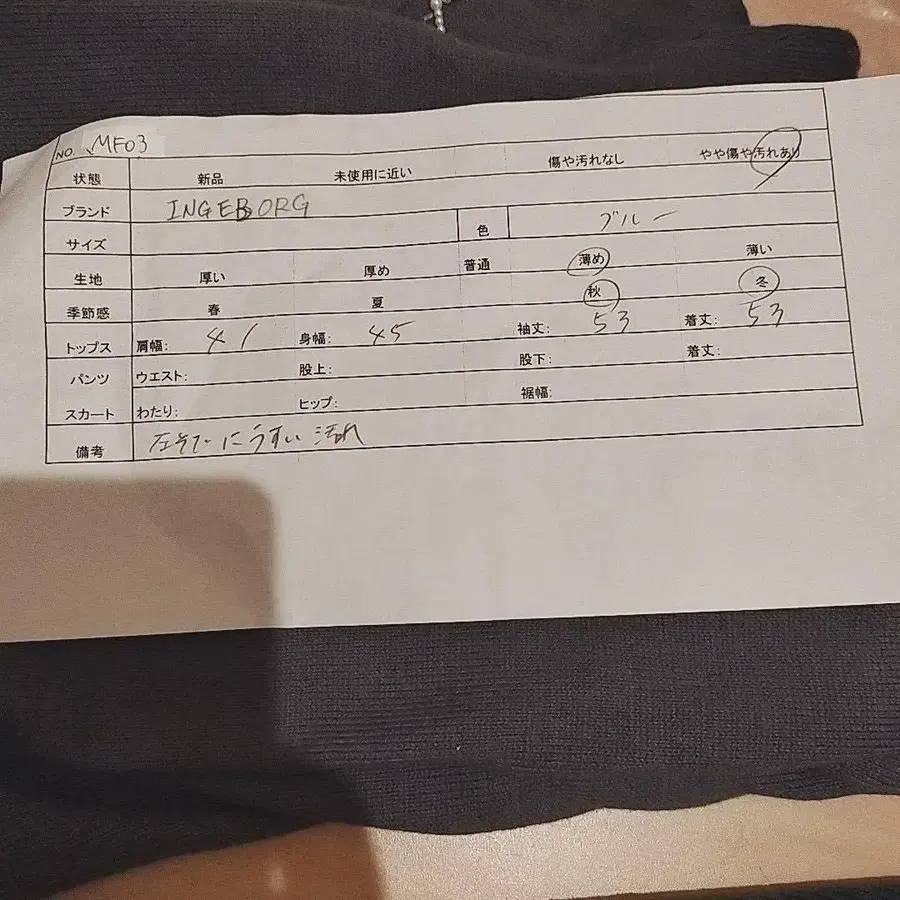 NO. MF03
状態 新品 未使用に近い 傷や汚れなし やや傷や汚れあり
ブランド INGEBORG
サイズ 色 ブルー
生地 厚い 厚め 普通 薄め 薄い
季節感 春 夏 秋 冬
トップス 肩幅: 41 身幅: 45 袖丈: 53 着丈: 53
パンツ ウエスト: 股上: 股下: 着丈:
スカート わたり: ヒップ: 裾幅:
備考 左そでにうすい汚れ